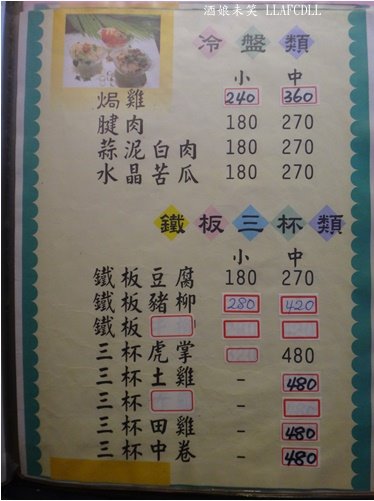 酒娘未笑 LLAFCDLL
冷盤類
小 中
焗雞 240 360
腱肉 180 270
蒜泥白肉 180 270
水晶苦瓜 180 270
鐵板三杯類
小 中
鐵板豆腐 180 270
鐵板豬柳 280 420
鐵板
三杯虎掌 480
三杯土雞 - 480
三杯 -
三杯田雞 - 480
三杯中卷 - 480